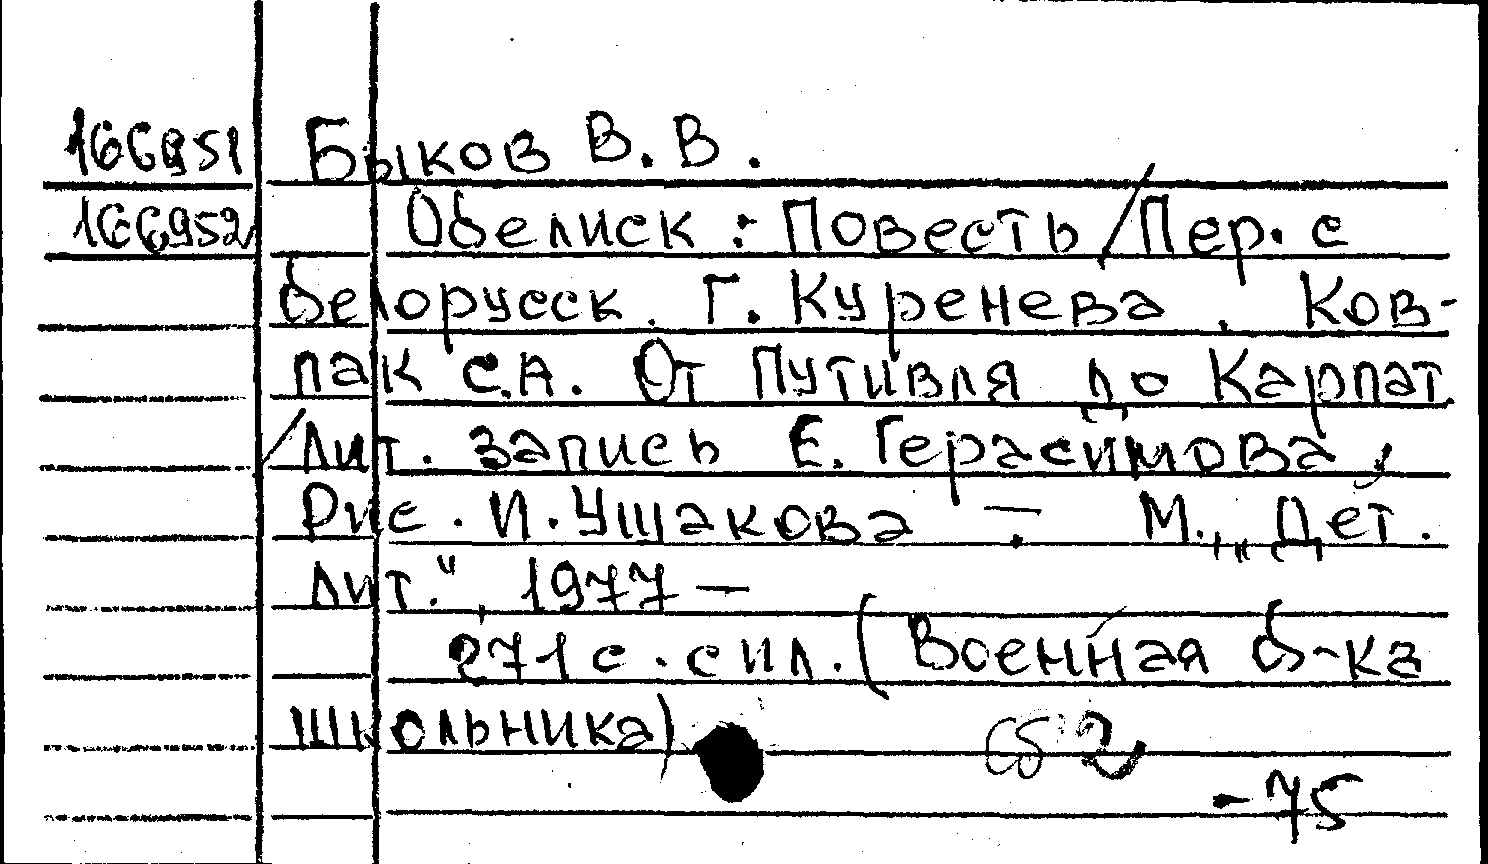 166951 Быков В. В.
166952 Обелиск : Повесть / Пер. с
белорусск. Г. Куренева. Ков-
пак С.А. От Путивля до Карпат
/ Лит. запись Е. Герасимова,
Рис. И. Ушакова. — М., „Дет.
лит.", 1977 —
271 с. с ил. (Военная б-ка
школьника)
-75